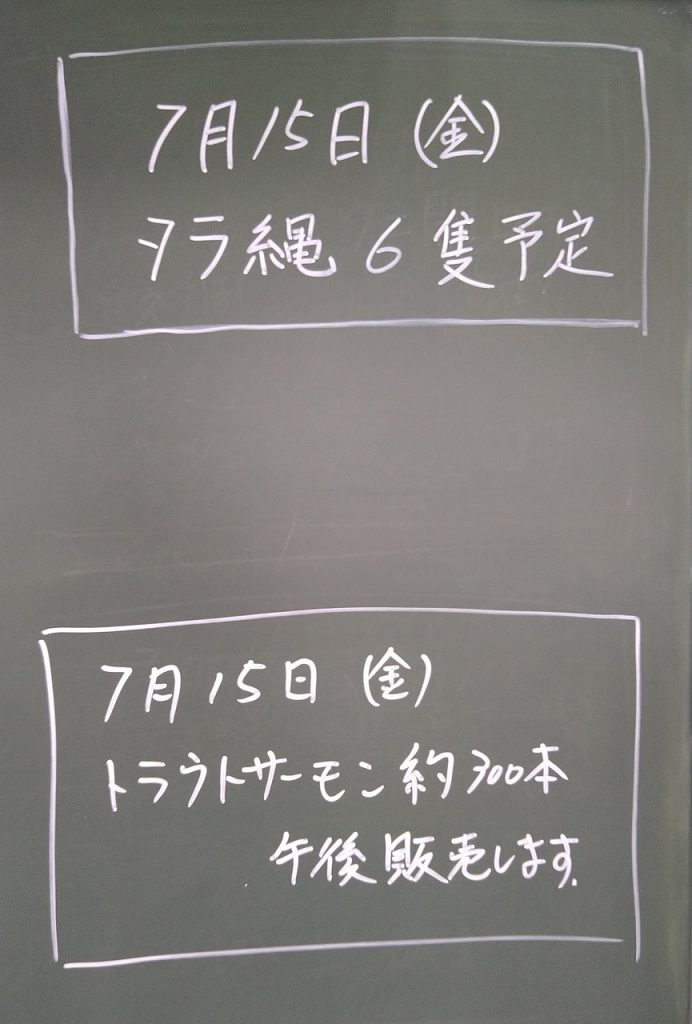 7月15日(金)
タラ縄 6隻予定
7月15日(金)
トラウトサーモン約300本
午後販売します.